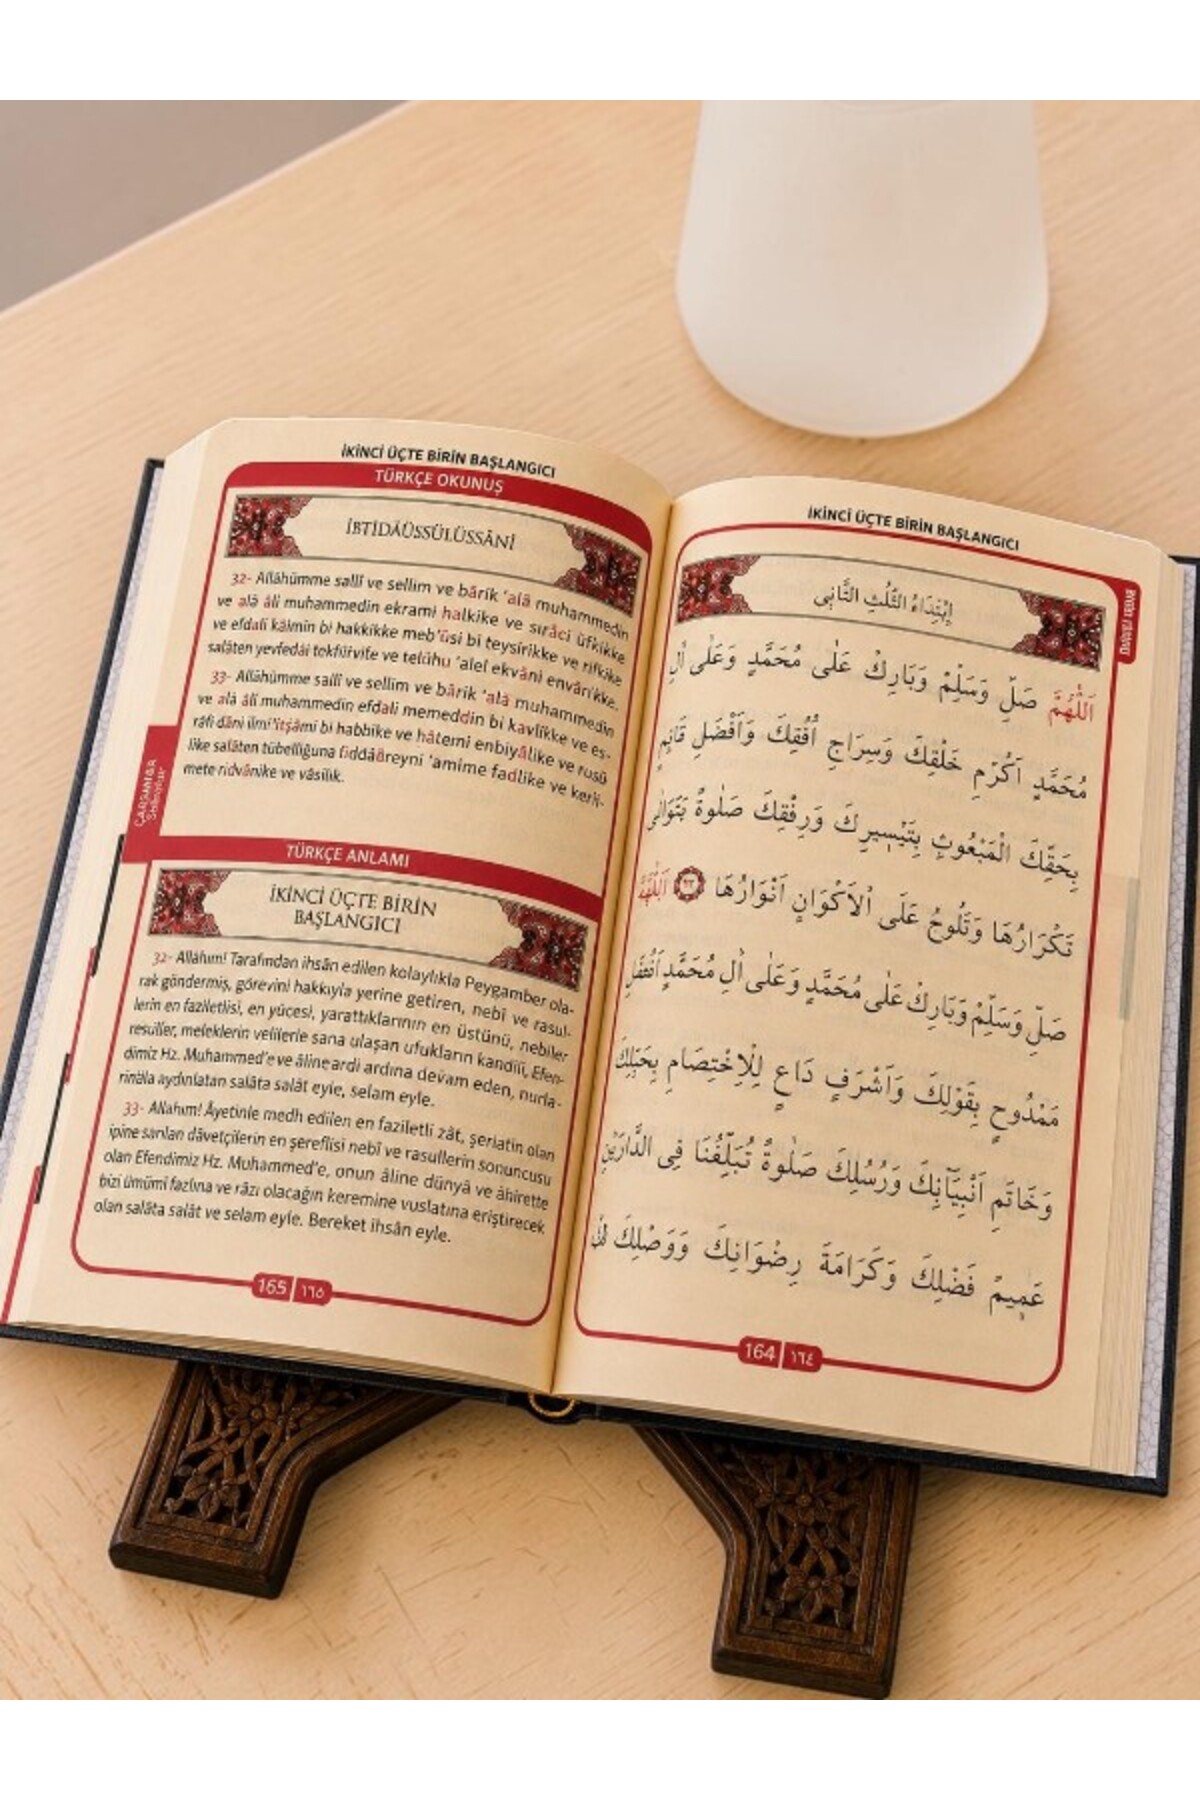 İKİNCİ ÜÇTE BİRİN BAŞLANGICI
TÜRKÇE OKUNUŞ
İBTİDÂÜSSÜLÜSSÂNÎ
32- Allâhümme sallî ve sellim ve bârik 'alâ muhammedin
ve alâ âli muhammedin ekrami halkike ve sırâci üfkikke
ve efdali kâimin bi hakkikke meb'ûsi bi teysîrikke ve rifkike
salâten yevfedâi tekfürvife ve telûhu 'alel ekvâni envârikke.
33- Allâhümme sallî ve sellim ve bârik 'alâ muhammedin
ve alâ âlî muhammedin efdali memeddin bi kavlikke ve es-
râfi dâni ilmi'itşâmi bi habbike ve hâtemi enbiyâlike ve rusü
like salâten tübelliğuna fiddââreyni 'amîme fadlike ve kerli-
mete ridvânike ve vâsilik.
ÇARŞAMBA
TÜRKÇE ANLAMI
İKİNCİ ÜÇTE BİRİN
BAŞLANGICI
32- Allâhım! Tarafından ihsân edilen kolaylıkla Peygamber ola-
rak göndermiş, görevini hakkıyla yerine getiren, nebî ve rasul-
lerin en faziletlisi, en yücesi, yarattıklarının en üstünü, nebiler
resuller, meleklerin velilerle sana ulaşan ufukların kandili, Efen-
dimiz Hz. Muhammed'e ve âline ardı ardına devam eden, nurla-
rınâla aydınlatan salâta salât eyle, selam eyle.
33- Allahım! Âyetinle medh edilen en faziletli zât, şeriatin olan
ipine sarılan dâvetçilerin en şereflisi nebî ve rasullerin sonuncusu
olan Efendimiz Hz. Muhammed'e, onun âline dünyâ ve âhirette
bizi ümûmî fazlına ve râzı olacağın keremine vuslatına eriştirecek
olan salâta salât ve selam eyle. Bereket ihsân eyle.
165 ١٦٥
İKİNCİ ÜÇTE BİRİN BAŞLANGICI
اِبْتِدَاءُ الثُّلُثِ الثَّانِى
اَللّٰهُمَّ صَلِّ وَسَلِّمْ وَبَارِكْ عَلٰى مُحَمَّدٍ وَعَلٰى اٰلِ
مُحَمَّدٍ اَكْرَمِ خَلْقِكَ وَسِرَاجِ اُفُقِكَ وَاَفْضَلِ قَائِمٍ
بِحَقِّكَ الْمَبْعُوثِ بِتَيْسِيرِكَ وَرِفْقِكَ صَلٰوةً يَتَوَالٰى
تَكْرَارُهَا وَتَلُوحُ عَلَى الْاَكْوَانِ اَنْوَارُهَا ٣٢ اَللّٰهُمَّ
صَلِّ وَسَلِّمْ وَبَارِكْ عَلٰى مُحَمَّدٍ وَعَلٰى اٰلِ مُحَمَّدٍ اَفْضَلِ
مَمْدُوحٍ بِقَوْلِكَ وَاَشْرَفِ دَاعٍ لِلْاِعْتِصَامِ بِحَبْلِكَ
وَخَاتَمِ اَنْبِيَآئِكَ وَرُسُلِكَ صَلٰوةً تُبَلِّغُنَا فِى الدَّارَيْنِ
عَمِيمَ فَضْلِكَ وَكَرَامَةَ رِضْوَانِكَ وَوَصْلِكَ
164 ١٦٤